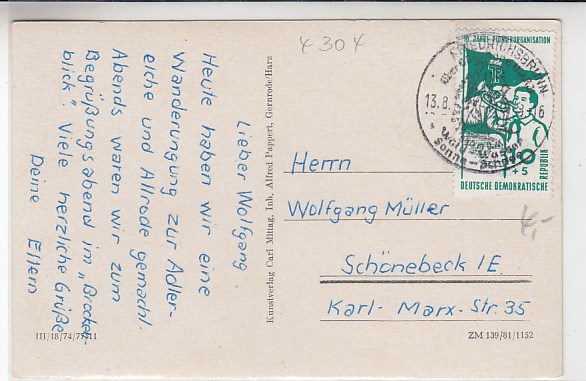 4 304
Lieber Wolfgang
Heute haben wir eine
Wanderung zur Adler-
eiche und Allrode gemacht.
Abends waren wir zum
Begrüßungsabend im "Brocken-
blick". Viele herzliche Grüße
Deine Eltern
III/18/74/77/11
Kunstverlag Carl Mittag, Inh. Alfred Pappert, Gernrode/Harz
10 JAHRE PIONIERORGANISATION
10
+5
DEUTSCHE DEMOKRATISCHE
REPUBLIK
FRIEDRICHSBRUNN
13.8.
16
Wald - Wasser
- Sonne - Schnee
4,-
Herrn
Wolfgang Müller
Schönebeck /E.
Karl-Marx-Str. 35
ZM 139/81/1152